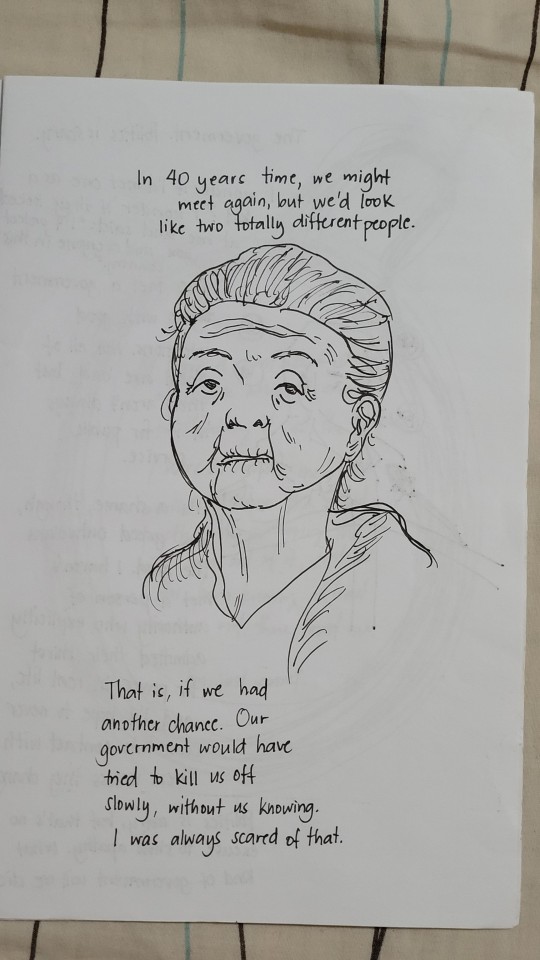 In 40 years time, we might
meet again, but we'd look
like two totally different people.
That is, if we had
another chance. Our
government would have
tried to kill us off
slowly, without us knowing.
I was always scared of that.